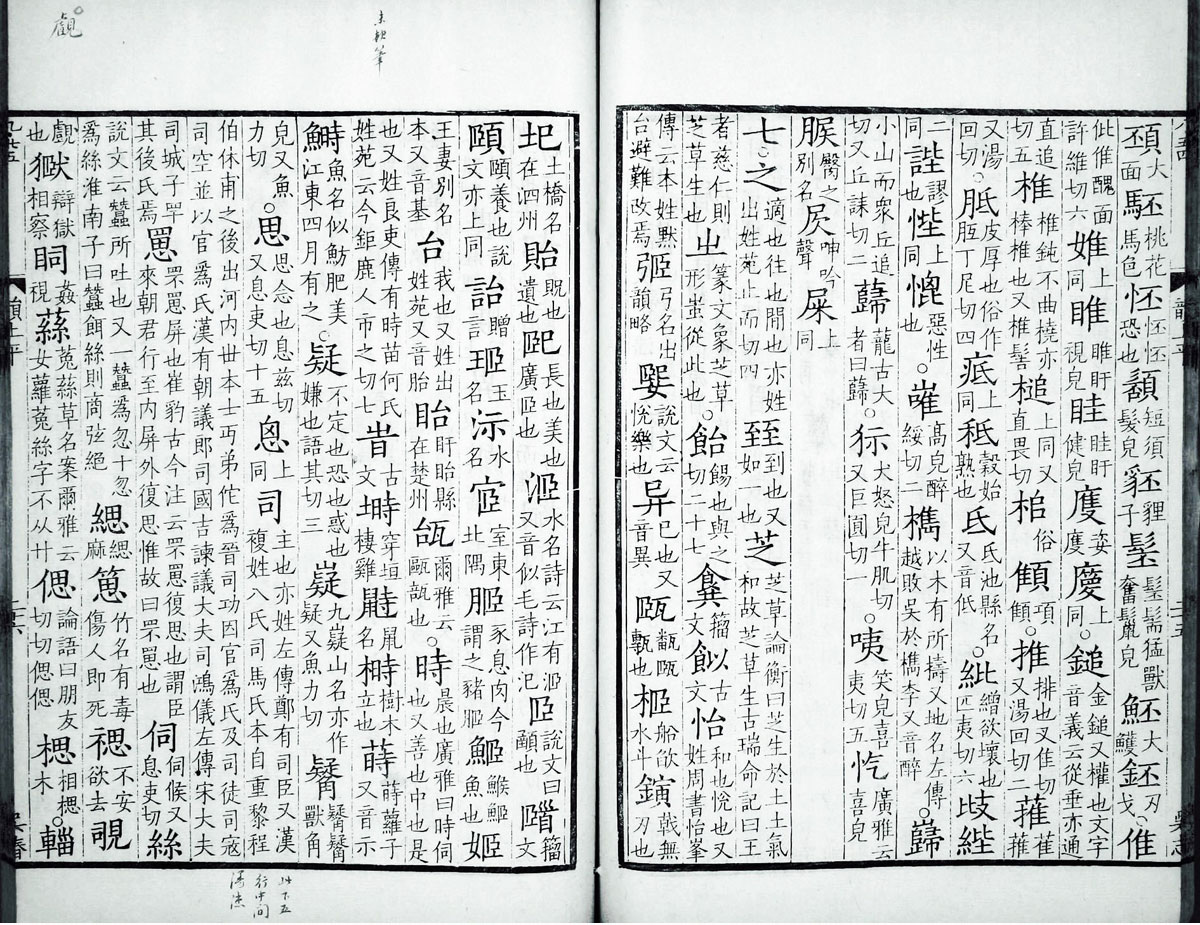 䫠大面駓桃花馬色怌怌怌恐也䫌短須髮皃豾貍子髬髬髵猛獸奮鬣皃魾大鱯鉟刃戈○倠
仳倠醜面許維切六婎上同睢睢盱視皃眭眭盱健皃姿上同○鎚金鎚又權也文字音義云從垂亦通
直追切五椎椎鈍不曲橈亦棒椎也又椎髻槌上同又直畏切桘俗顀項顀○推排也又隹切又湯回切二蓷萑蓷
又湯回切○胝皮厚也俗作胵丁尼切四疷上同秪穀始熟也氐氐池縣名又音低○紕繒欲壞也匹夷切六歧悂
二誰謬也性上同㥓惡性也○嶉高皃醉綏切二檇以木有所擣又地名左傳越敗吳於檇李又音醉○巋
小山而衆丘追切又丘誄切二蘬蘢古大者曰蘬○狋犬怒皃牛肌切又巨圓切一○咦笑皃喜夷切五忔廣雅云喜皃
脄臋之別名㞒呻吟聲屎上同
七○之適也往也開也亦姓出姓苑止而切四臸到也又如一也芝芝草論衡曰芝生於土土氣和故芝草生古瑞命記曰王
者慈仁則芝草生也㞢篆文象芝草形蚩從此也○飴餳也與之切二十七䬮籀文䬢古文怡和也悅也又姓周書怡峯
傳云本姓默台避難改焉弬弓名出韻略嬰說文云悅樂也异已也又音異瓯㼾瓯甎也柂船欲水斗鏔戟無刃也
圯土橋名在泗州貽貺也遺也𦣞長也美也廣𦣞也洍水名詩云江有洍又音似毛詩作汜𦣝說文曰顄也𦣠籀文
頤頤養也說文亦上同詒贈言㺿玉名沶水名宧室東北隅䏰豕息肉今謂之豬䏰䱌鯸䱌魚也姬
王妻別名本又音基台我也又姓出姓苑又音胎眙盱眙縣在楚州瓵爾雅云甌瓿也○時晨也廣雅曰時伺也又善也中也是
也又姓良吏傳有時苗何氏姓苑云今鉅鹿人市之切七旹古文塒穿垣棲雞鼭鼠名榯樹木立也蒔蒔蘿子又音示
鰣魚名似魴肥美江東四月有之○疑不定也恐也惑也嫌也語其切三嶷九嶷山名亦作疑又魚力切觺觺觺獸角
皃又魚力切○思思念也息茲切又息吏切十五恖上同司主也亦姓左傳鄭有司臣又漢複姓八氏司馬氏本自重黎程
伯休甫之後出河內世本士丐弟佗爲晉司功因官爲氏及司徒司寇司空並以官爲氏漢有朝議郎司國吉諫議大夫司鴻儀左傳宋大夫
司城子罕其後氏焉罳罘罳屏也崔豹古今注云罘罳復思也謂臣來朝君行至內屏外復思惟故曰罘罳也伺伺候又息吏切絲
說文云蠶所吐也又一蠶爲忽十忽爲絲淮南子曰蠶餌絲則商弦絕緦緦麻䈢竹名有毒傷人即死禗不安欲去覗
覰也獄辯獄相察䦙姦視蕬菟蕬草名案爾雅云女蘿菟絲字不从廾偲論語曰朋友切切偲偲楒相楒木○輜